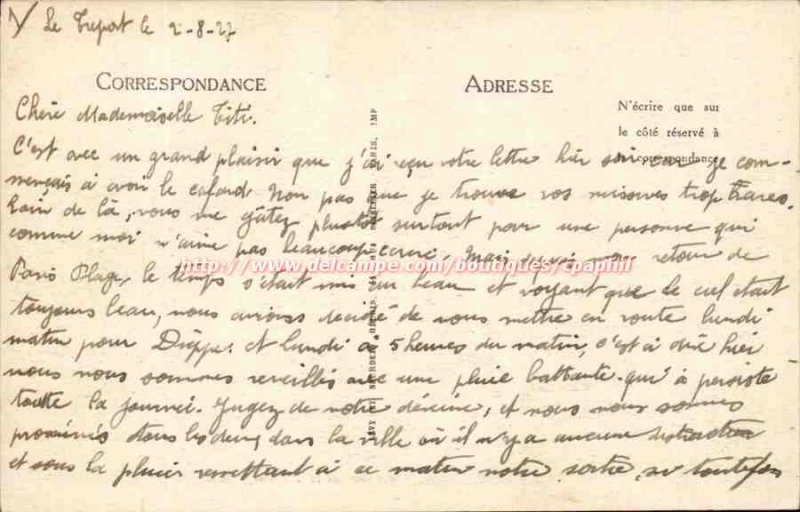 Le Treport le 2-8-27
CORRESPONDANCE
ADRESSE
N'écrire que sur
le côté réservé à
la correspondance
Chère Mademoiselle Titi.
C'est avec un grand plaisir que j'ai reçu votre lettre hier soir car je com-
mençais à avoir le cafard. Non pas que je trouve vos missives trop rares.
Loin de là, vous me gâtez plustôt surtout pour une personne qui
comme moi n'aime pas beaucoup ecrire. Mais depuis mon retour de
Paris Plage, le temps s'était mis au beau et voyant que le ciel était
toujours beau, nous avions decidé de nous mettre en route lundi
matin pour Dieppe. et lundi à 5 heures du matin, c'est à dire hier
nous nous sommes reveillés avec une pluie battante qui à persisté
toutte la journéi. Jugez de notre déveine, et nous nous sommes
promenés tous les deux dans la ville où il n'y a aucune distraction
et sous la pluie remettant à ce matin notre sortie, si toutefois
http://www.delcampe.com/boutiques/cpaphil